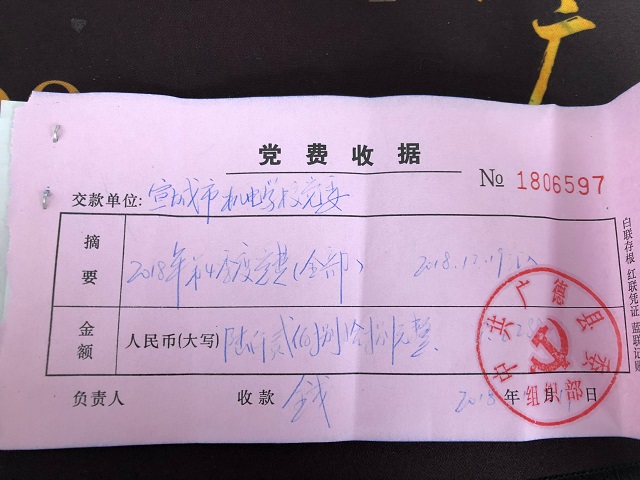 广
党费收据
№ 1806597
交款单位: 宣城市机电学校党委
摘要 2018年第4季度党费(全部) 2018.12.19
金额 人民币(大写) 陆仟贰佰捌拾捌元整
负责人 收款 钱 2018年 月19日
中共广德县委
组织部
白联存根 红联凭证 蓝联记账